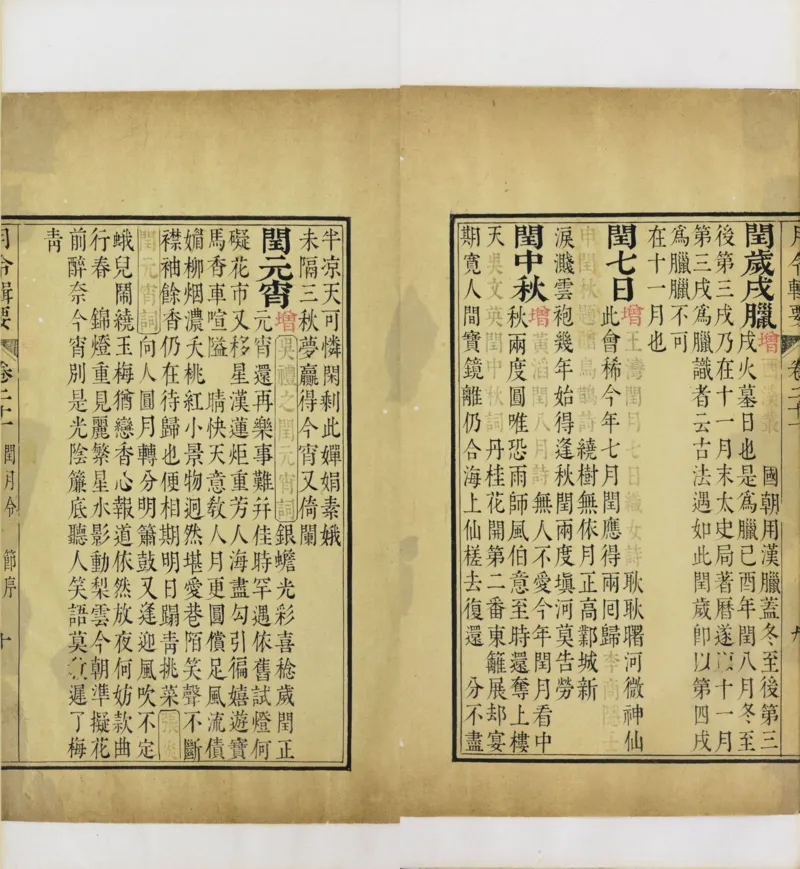 月令輯要 卷二十一 九
閏歲戌臘 增 西溪叢 國朝用漢臘蓋冬至後第三
戌火墓日也是爲臘己酉年閏八月冬至
後第三戌乃在十一月末太史局著曆遂以十一月
第三戌爲臘識者云古法遇如此閏歲卽以第四戌
爲臘臘不可
在十一月也
閏七日 增 王灣閏月七日織女詩 耿耿曙河微神仙
此會稀今年七月閏應得兩囘歸 李商隱壬
申閏秋題贈烏鵲詩 繞樹無依月正高鄴城新
淚濺雲袍幾年始得逢秋閏兩度塡河莫告勞
閏中秋 增 黃滔閏八月詩 無人不愛今年閏月看中
秋兩度圓唯恐雨師風伯意至時還奪上樓
天 吳文英閏中秋詞 丹桂花開第二番東籬展却宴
期寬人間寶鏡離仍合海上仙槎去復還 分不盡
半凉天可憐閑剩此嬋娟素娥
未隔三秋夢贏得今宵又倚闌
閏元宵 增 吳禮之閏元宵詞 銀蟾光彩喜稔歲閏正
元宵還再樂事難幷佳時罕遇依舊試燈何
礙花市又移星漢蓮炬重芳人海盡勾引徧嬉遊寶
馬香車喧隘 晴快天意敎人月更圓償足風流債
媚柳烟濃夭桃紅小景物迥然堪愛巷陌笑聲不斷
襟袖餘香仍在待歸也便相期明日蹋靑挑菜 張炎
閏元宵詞 向人圓月轉分明簫鼓又逢迎風吹不定
蛾兒鬧繞玉梅猶戀香心報道依然放夜何妨款曲
行春 錦燈重見麗繁星水影動梨雲今朝準擬花
前醉奈今宵別是光陰簾底聽人笑語莫敎遲了梅
靑
月令輯要 卷二十一 閏月令 節序 十